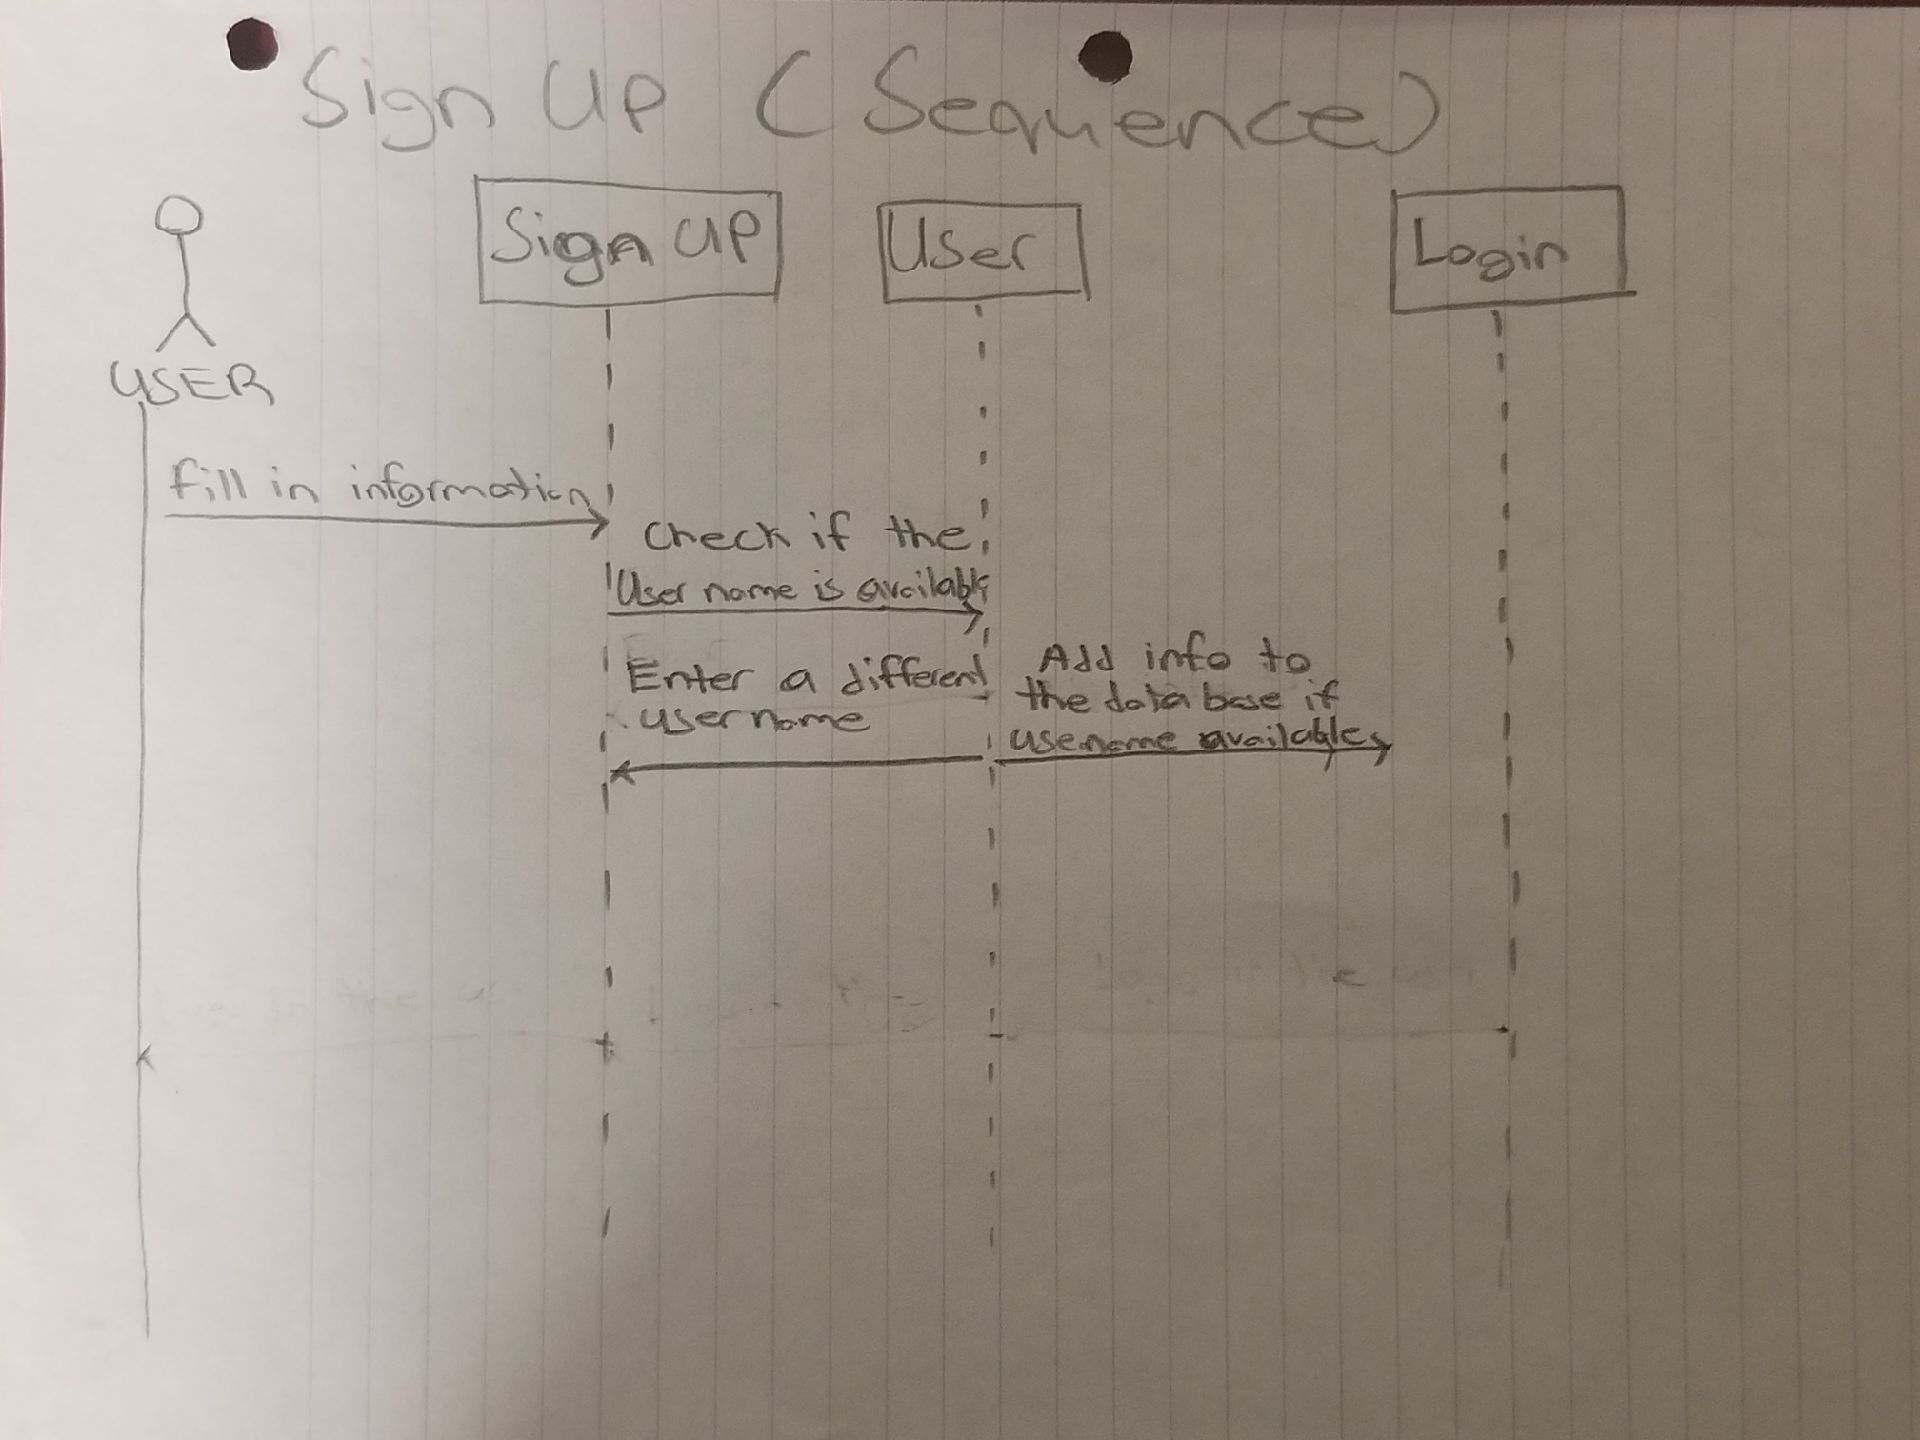 Sign Up (Sequence)
Sign UP
User
Login
USER
fill in information
Check if the
User name is available
Enter a different
user name
Add info to
the data base if
username available